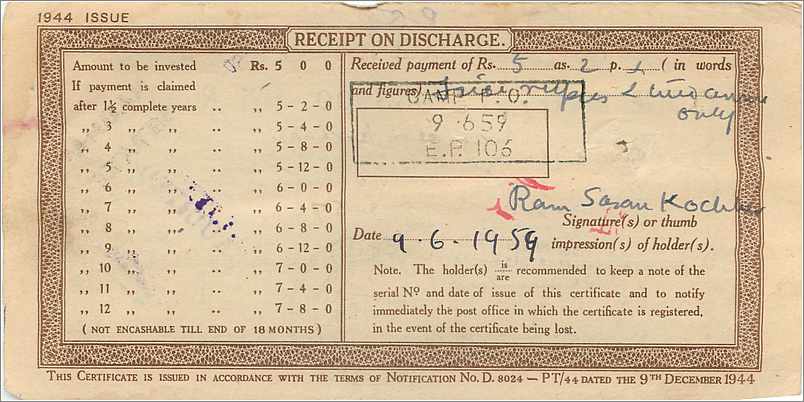 1944 ISSUE
RECEIPT ON DISCHARGE.
Amount to be invested Rs. 5 0 0
If payment is claimed
after 1½ complete years .. ,, 5-2-0
,, 3 ,, ,, .. ,, 5-4-0
,, 4 ,, ,, .. ,, 5-8-0
,, 5 ,, ,, .. ,, 5-12-0
,, 6 ,, ,, .. ,, 6-0-0
,, 7 ,, ,, .. ,, 6-4-0
,, 8 ,, ,, .. ,, 6-8-0
,, 9 ,, ,, .. ,, 6-12-0
,, 10 ,, ,, .. ,, 7-0-0
,, 11 ,, ,, .. ,, 7-4-0
,, 12 ,, ,, .. ,, 7-8-0
(NOT ENCASHABLE TILL END OF 18 MONTHS)
Received payment of Rs. 5 as. 2 p. (in words
and figures) rupees & two annas
only
CAMP P.O.
9 .6 59
E.P. 106
Ram Saran Kochhar
Signature(s) or thumb
Date 9.6.1959 impression(s) of holder(s).
Note. The holder(s) is/are recommended to keep a note of the
serial Nº and date of issue of this certificate and to notify
immediately the post office in which the certificate is registered,
in the event of the certificate being lost.
THIS CERTIFICATE IS ISSUED IN ACCORDANCE WITH THE TERMS OF NOTIFICATION NO. D. 8024 — PT/44 DATED THE 9TH DECEMBER 1944